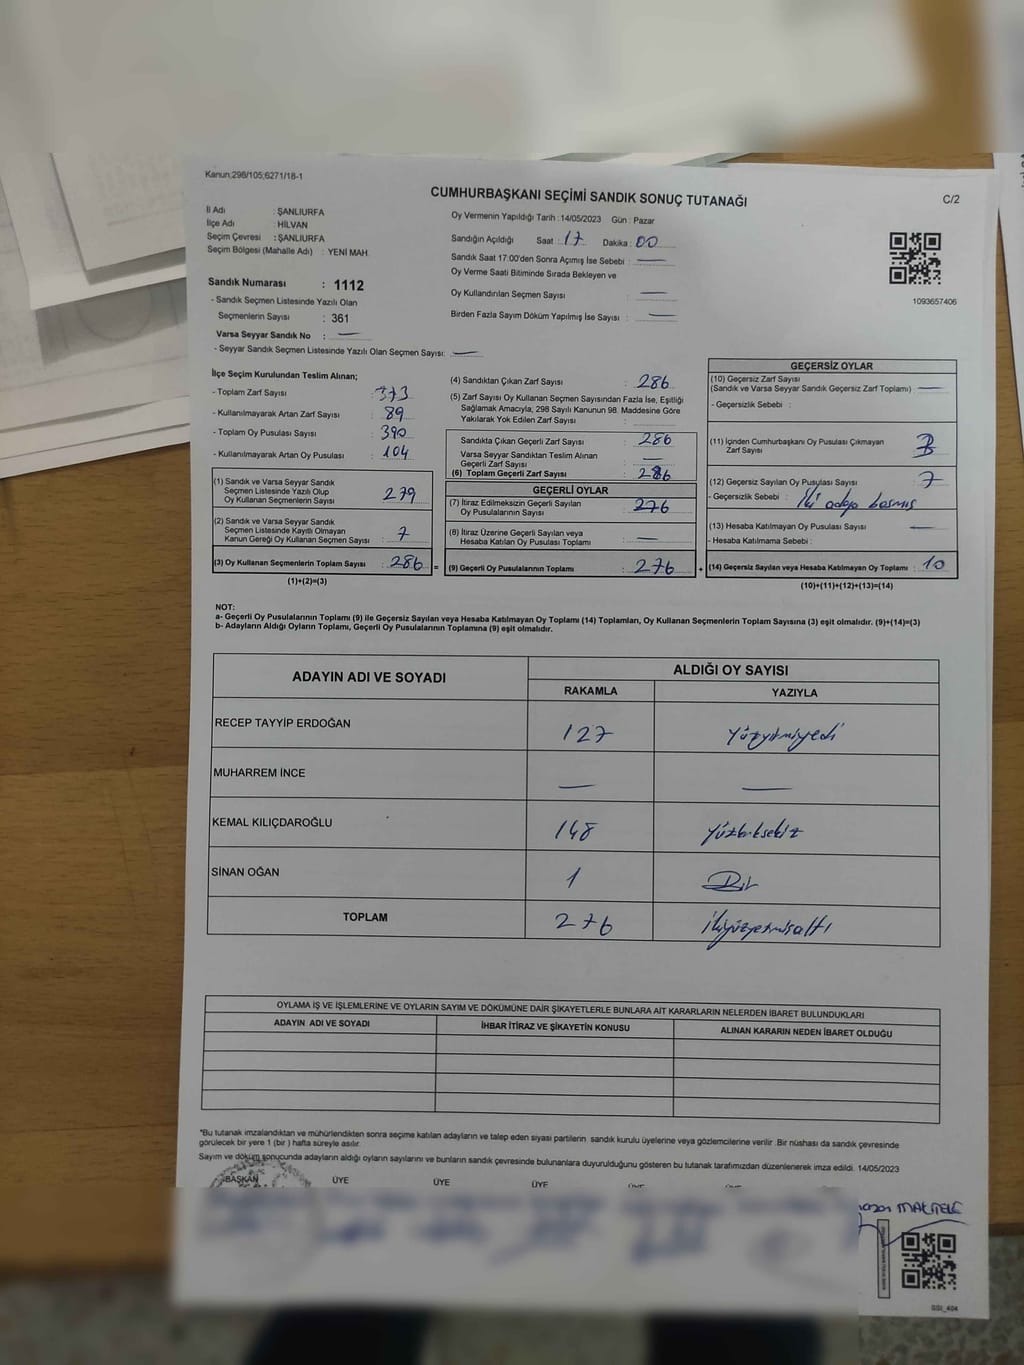 Kanun;298/105;6271/18-1
CUMHURBAŞKANI SEÇİMİ SANDIK SONUÇ TUTANAĞI
C/2
İl Adı : ŞANLIURFA
İlçe Adı : HİLVAN
Seçim Çevresi : ŞANLIURFA
Seçim Bölgesi (Mahalle Adı) : YENİ MAH.
Sandık Numarası : 1112
- Sandık Seçmen Listesinde Yazılı Olan
Seçmenlerin Sayısı : 361
Varsa Seyyar Sandık No : —
- Seyyar Sandık Seçmen Listesinde Yazılı Olan Seçmen Sayısı: —
Oy Vermenin Yapıldığı Tarih : 14/05/2023 Gün : Pazar
Sandığın Açıldığı Saat : 17 Dakika : 00
Sandık Saat 17:00'den Sonra Açımış İse Sebebi : —
Oy Verme Saati Bitiminde Sırada Bekleyen ve
Oy Kullandırılan Seçmen Sayısı : —
Birden Fazla Sayım Döküm Yapılmış İse Sayısı : —
1093657406
İlçe Seçim Kurulundan Teslim Alınan;
- Toplam Zarf Sayısı : 373
- Kullanılmayarak Artan Zarf Sayısı : 89
- Toplam Oy Pusulası Sayısı : 390
- Kullanılmayarak Artan Oy Pusulası : 104
(1) Sandık ve Varsa Seyyar Sandık
Seçmen Listesinde Yazılı Olup
Oy Kullanan Seçmenlerin Sayısı : 279
(2) Sandık ve Varsa Seyyar Sandık
Seçmen Listesinde Kayıtlı Olmayan
Kanun Gereği Oy Kullanan Seçmen Sayısı : 7
(3) Oy Kullanan Seçmenlerin Toplam Sayısı : 286 =
(1)+(2)=(3)
(4) Sandıktan Çıkan Zarf Sayısı : 286
(5) Zarf Sayısı Oy Kullanan Seçmen Sayısından Fazla İse, Eşitliği
Sağlamak Amacıyla; 298 Sayılı Kanunun 98. Maddesine Göre
Yakılarak Yok Edilen Zarf Sayısı :
Sandıkta Çıkan Geçerli Zarf Sayısı : 286
Varsa Seyyar Sandıktan Teslim Alınan
Geçerli Zarf Sayısı : —
(6) Toplam Geçerli Zarf Sayısı : 286
GEÇERLİ OYLAR
(7) İtiraz Edilmeksizin Geçerli Sayılan
Oy Pusulalarının Sayısı : 276
(8) İtiraz Üzerine Geçerli Sayılan veya
Hesaba Katılan Oy Pusulası Toplamı : —
(9) Geçerli Oy Pusulalarının Toplamı : 276 +
GEÇERSİZ OYLAR
(10) Geçersiz Zarf Sayısı
(Sandık ve Varsa Seyyar Sandık Geçersiz Zarf Toplamı) : —
- Geçersizlik Sebebi :
(11) İçinden Cumhurbaşkanı Oy Pusulası Çıkmayan
Zarf Sayısı : 3
(12) Geçersiz Sayılan Oy Pusulası Sayısı : 7
- Geçersizlik Sebebi : İki adaya basmış
(13) Hesaba Katılmayan Oy Pusulası Sayısı : —
- Hesaba Katılmama Sebebi :
(14) Geçersiz Sayılan veya Hesaba Katılmayan Oy Toplamı : 10
(10)+(11)+(12)+(13)=(14)
NOT:
a- Geçerli Oy Pusulalarının Toplamı (9) ile Geçersiz Sayılan veya Hesaba Katılmayan Oy Toplamı (14) Toplamları, Oy Kullanan Seçmenlerin Toplam Sayısına (3) eşit olmalıdır. (9)+(14)=(3)
b- Adayların Aldığı Oyların Toplamı, Geçerli Oy Pusulalarının Toplamına (9) eşit olmalıdır.
ADAYIN ADI VE SOYADI ALDIĞI OY SAYISI
RAKAMLA YAZIYLA
RECEP TAYYİP ERDOĞAN 127 Yüzyirmiyedi
MUHARREM İNCE — —
KEMAL KILIÇDAROĞLU 148 Yüzkırksekiz
SİNAN OĞAN 1 Bir
TOPLAM 276 İkiyüzyetmişaltı
OYLAMA İŞ VE İŞLEMLERİNE VE OYLARIN SAYIM VE DÖKÜMÜNE DAİR ŞİKAYETLERLE BUNLARA AİT KARARLARIN NELERDEN İBARET BULUNDUKLARI
ADAYIN ADI VE SOYADI İHBAR İTİRAZ VE ŞİKAYETİN KONUSU ALINAN KARARIN NEDEN İBARET OLDUĞU
*Bu tutanak imzalandıktan ve mühürlendikten sonra seçime katılan adayların ve talep eden siyasi partilerin sandık kurulu üyelerine veya gözlemcilerine verilir .Bir nüshası da sandık çevresinde
görülecek bir yere 1 (bir ) hafta süreyle asılır.
Sayım ve döküm sonucunda adayların aldığı oyların sayılarını ve bunların sandık çevresinde bulunanlara duyurulduğunu gösteren bu tutanak tarafımızdan düzenlenerek imza edildi. 14/05/2023
BAŞKAN ÜYE ÜYE ÜYE
GSI_404